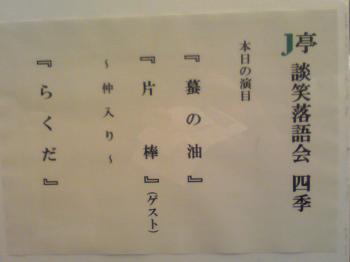 J亭 談笑落語会 四季
本日の演目
『蟇の油』
『片棒』(ゲスト)
～仲入り～
『らくだ』